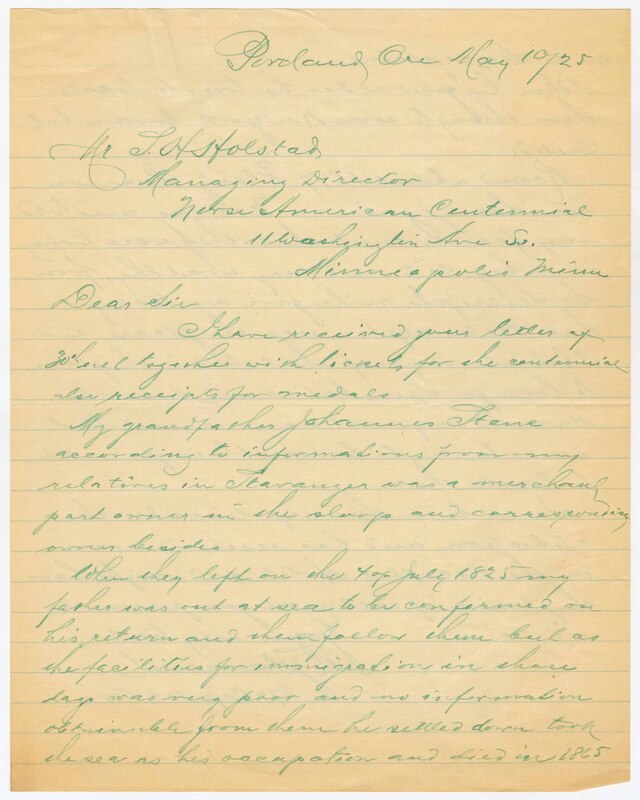 Portland Ore May 10/25
Mr S. H Holstad
Managing Director
Norse American Centennial
11 Washington Ave So.
Minneapolis Minn.
Dear Sir
I have received your letter of
30th together with tickets for the centennial
also receipts for medals
My grandfather Johannes Stene
according to informations from my
relatives in Stavanger was a merchant
part owner in the sloop and corresponding
owner besides
When they left on the 4 of July 1825 my
father was out at sea to be confermed on
his return and then follow them but as
the facilities for immigration in those
days was very poor and no information
obtainable from them he settled down took
the sea as his occupation and died in 1865